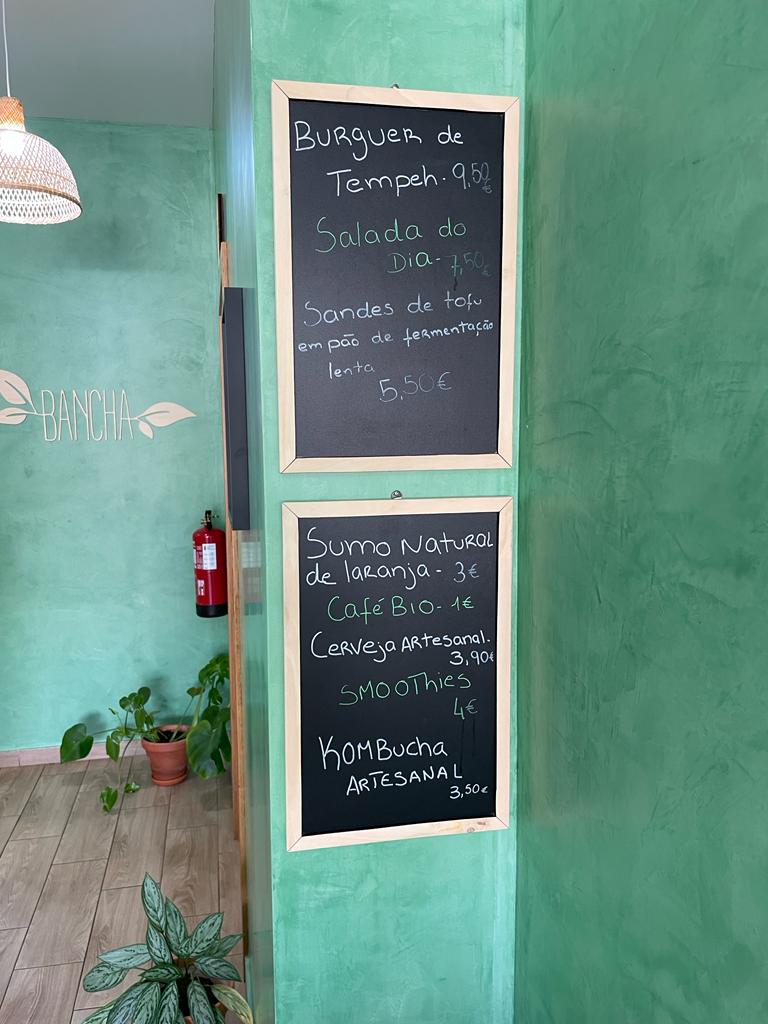 BURGUER de
Tempeh. 9,50€
Salada do
DIA - 7,50€
Sandes de tofu
em pão de fermentação
lenta
5,50€
BANCHA
SUMO NATURAL
de laranja - 3€
Café BIO - 1€
CERVEJA ARTESANAL.
3,90€
SMOOThIES
4€
KOMBucha
ARTESANAL
3,50€